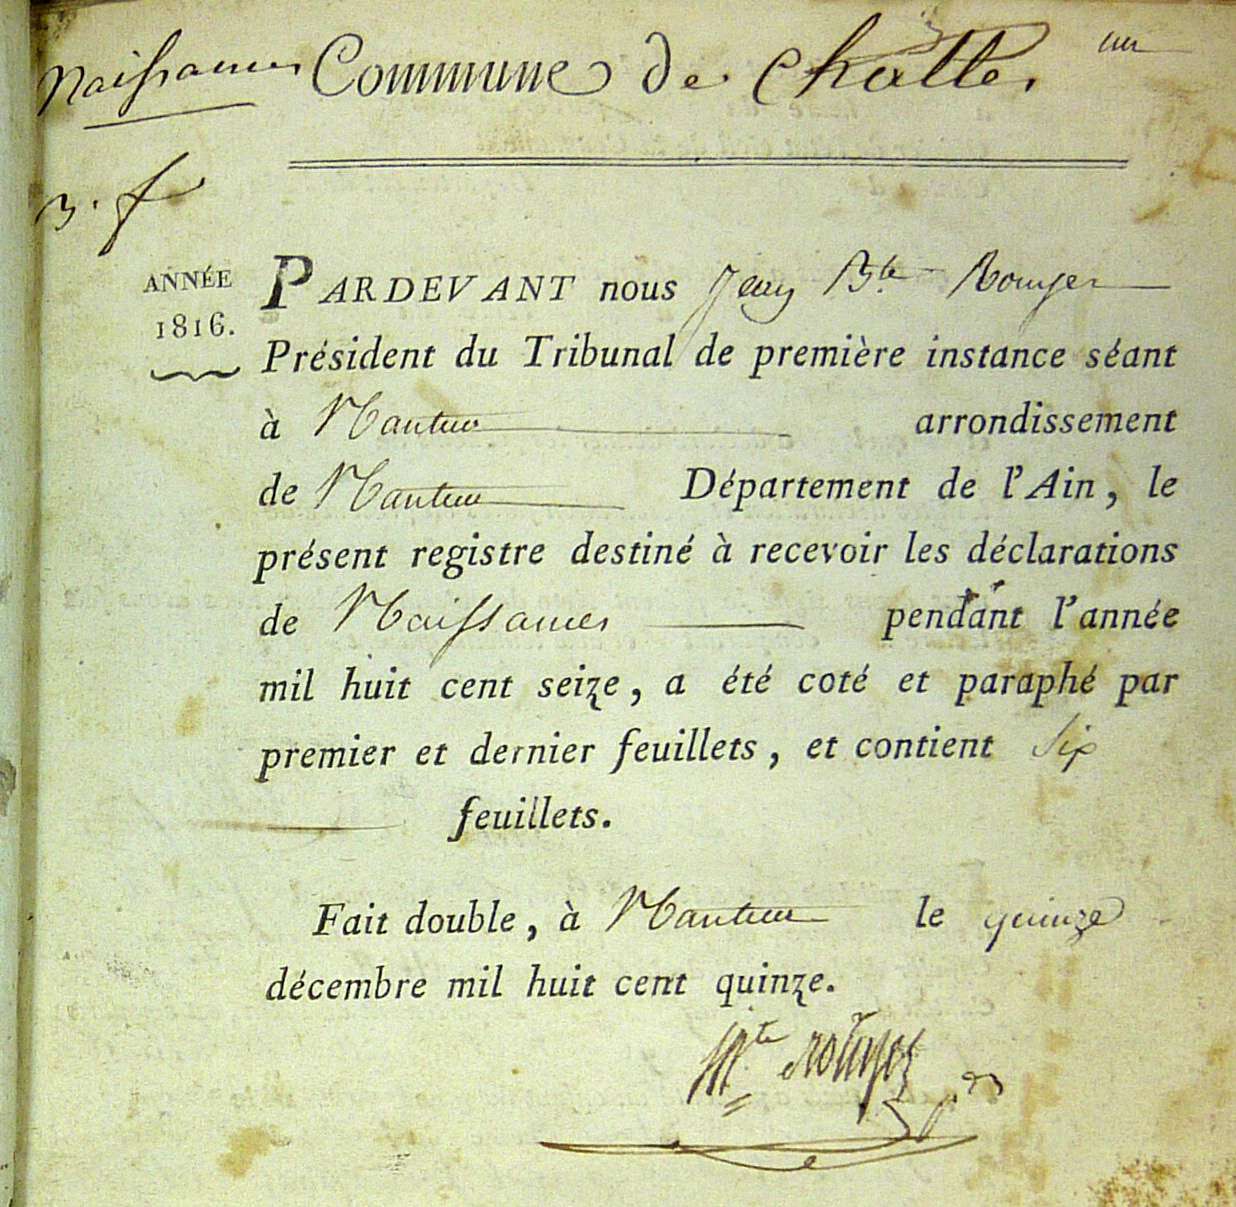 Naissances Commune de Challes un
3. f
ANNÉE PARDEVANT nous Jean Bte Rouyer
1816. Président du Tribunal de première instance séant
à Nantua arrondissement
de Nantua Département de l'Ain, le
présent registre destiné à recevoir les déclarations
de Naissances pendant l'année
mil huit cent seize, a été coté et paraphé par
premier et dernier feuillets, et contient Six
feuillets.
Fait double, à Nantua le quinze
décembre mil huit cent quinze.